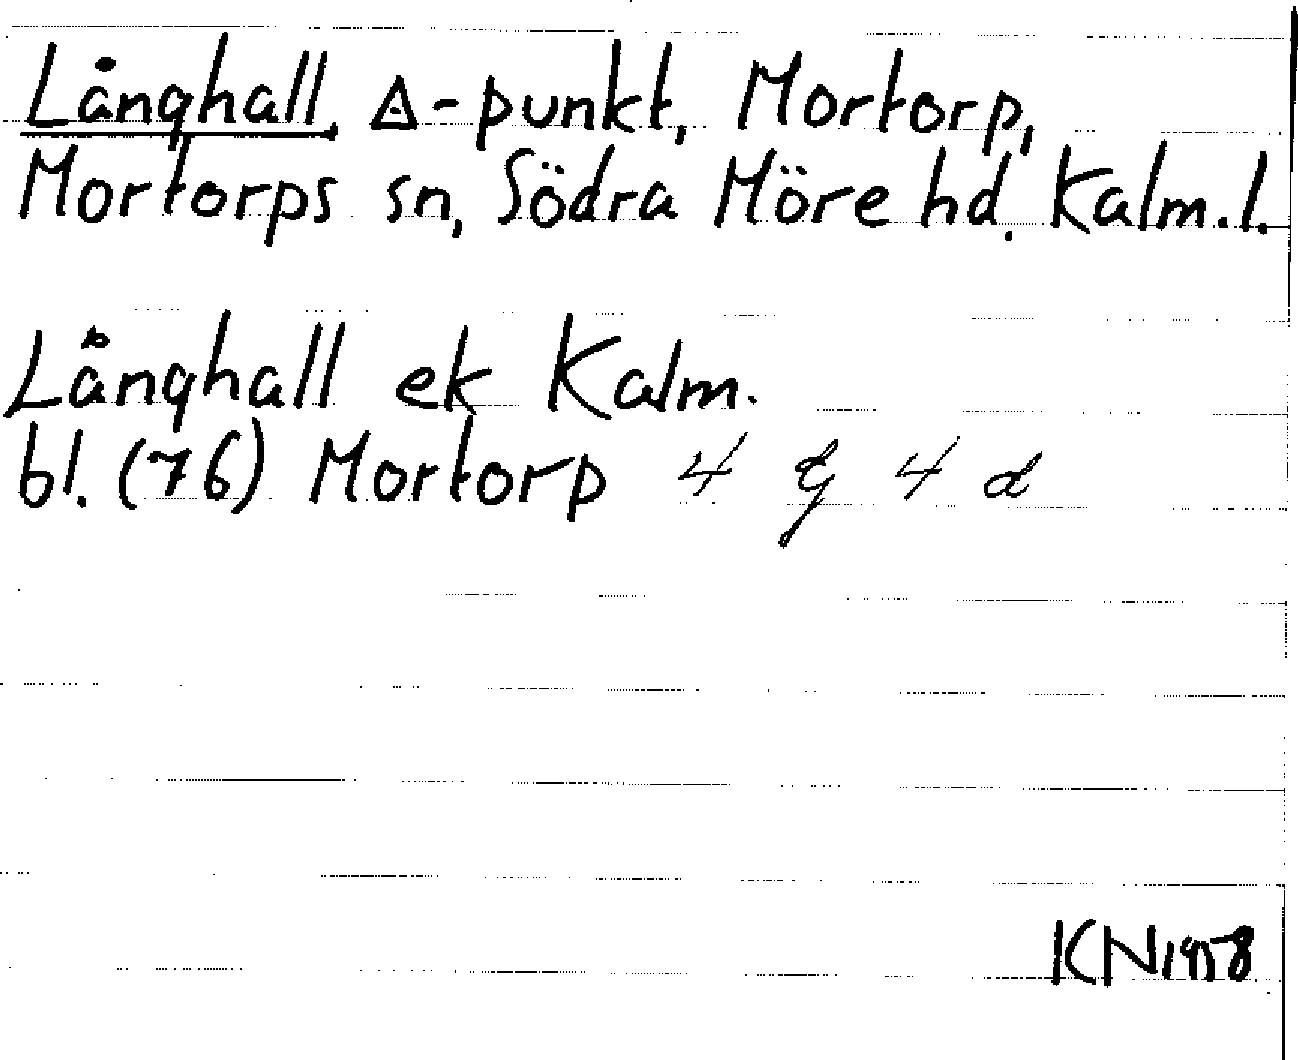 Långhall, ∆-punkt, Mortorp,
Mortorps sn, Södra Möre hd. Kalm. l.
Långhall ek Kalm.
bl. (76) Mortorp 4 G 4 d
KN 1958